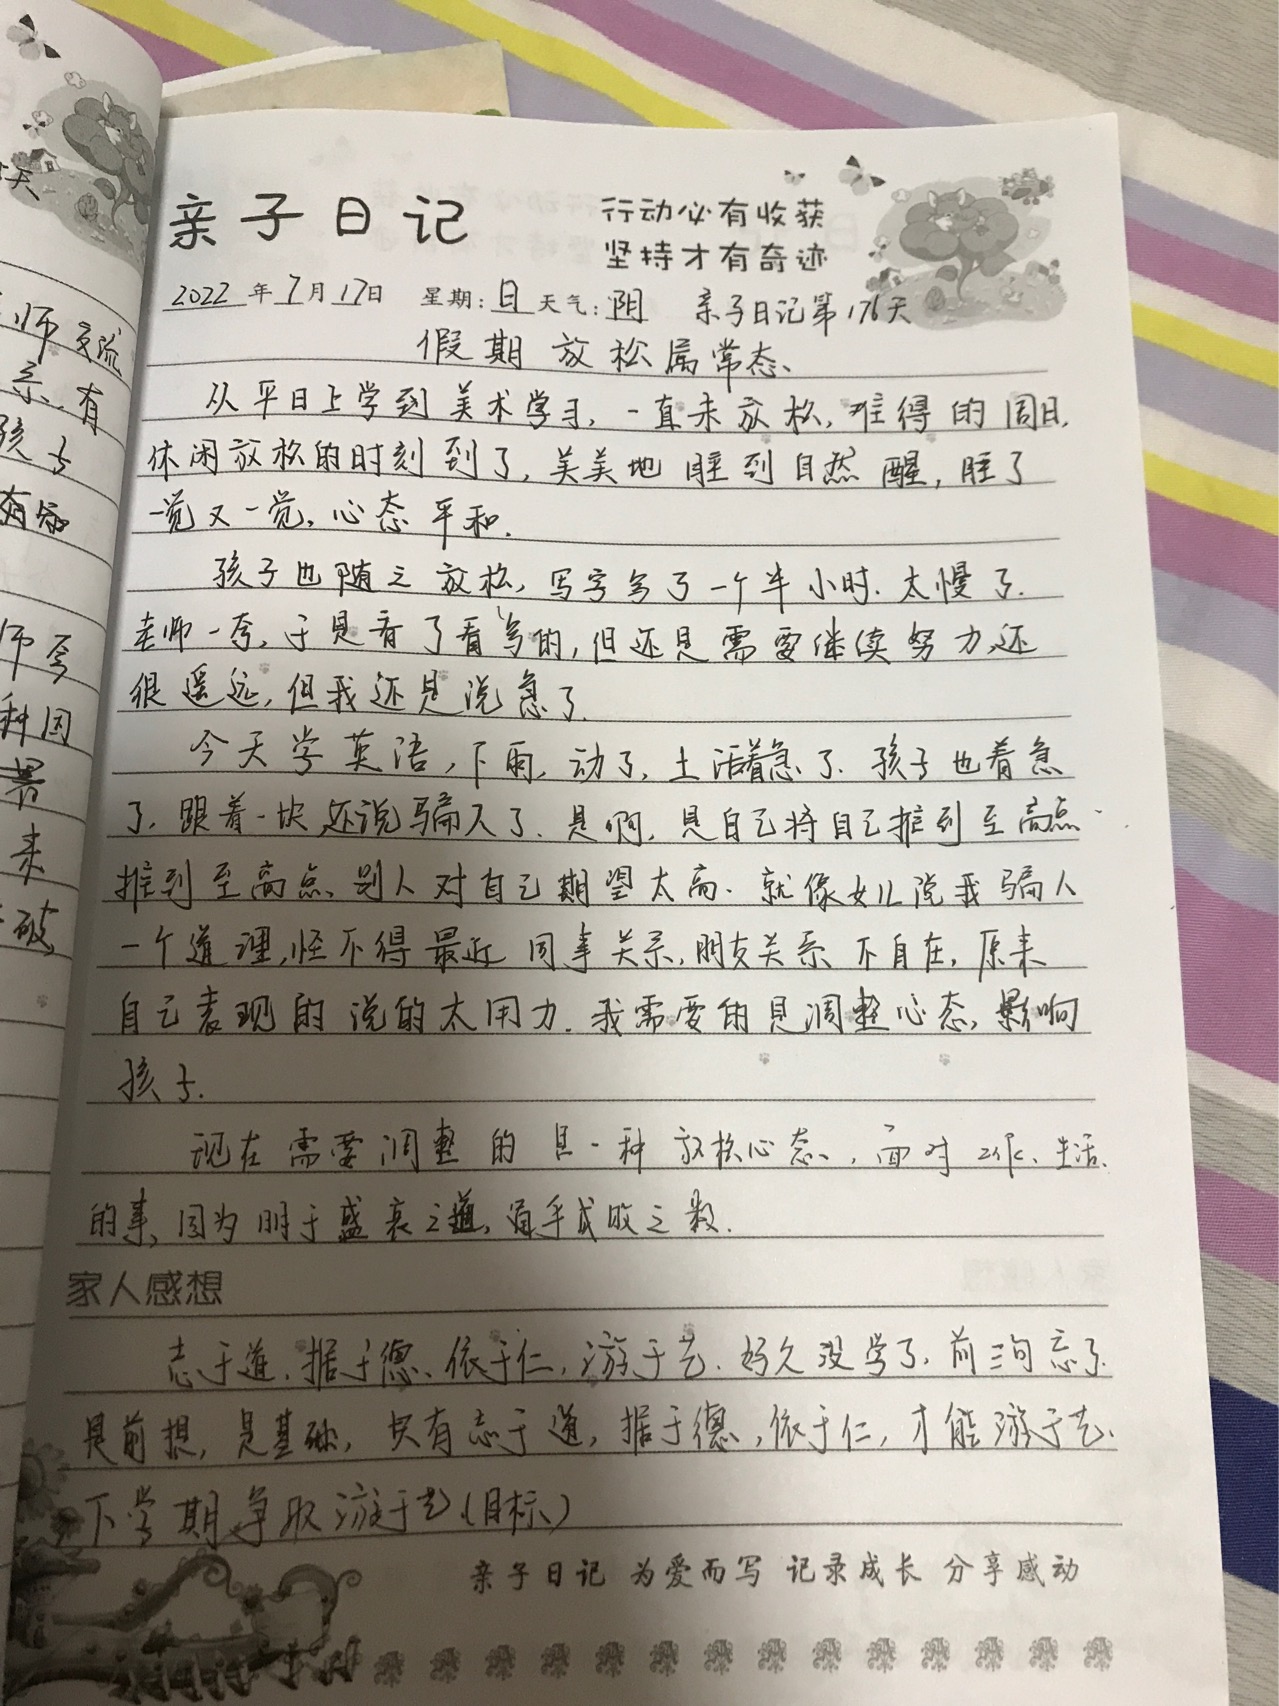 天
师交流
系、有
孩子
有知
师夸
种因
暑
来
破
亲子日记
行动必有收获
坚持才有奇迹
2022年7月17日 星期:日 天气:阴 亲子日记第176天
假期放松属常态、
从平日上学到美术学习,一直未放松,难得的周日,
休闲放松的时刻到了,美美地睡到自然醒,睡了
一觉又一觉,心态平和.
孩子也随之放松,写字写了一个半小时.太慢了.
老师一夸,于是看了看写的,但还是需要继续努力,还
很遥远,但我还是说急了.
今天学英语,下雨,动了,土活着急了.孩子也着急
了,跟着一块,还说骗人了.是啊,是自己将自己推到至高点.
推到至高点,别人对自己期望太高.就像女儿说我骗人
一个道理,怪不得最近同事关系,朋友关系不自在,原来
自己表现的说的太用力.我需要的是调整心态,影响
孩子.
现在需要调整的是一种放松心态、,面对工作、生活、
的事,因为明于盛衰之道,通乎成败之数.
家人感想
志于道,据于德、依于仁,游于艺.好久没学了,前三句忘了.
是前提,是基础,只有志于道,据于德,依于仁,才能游于艺.
下学期争取游于艺(目标)
亲子日记 为爱而写 记录成长 分享感动